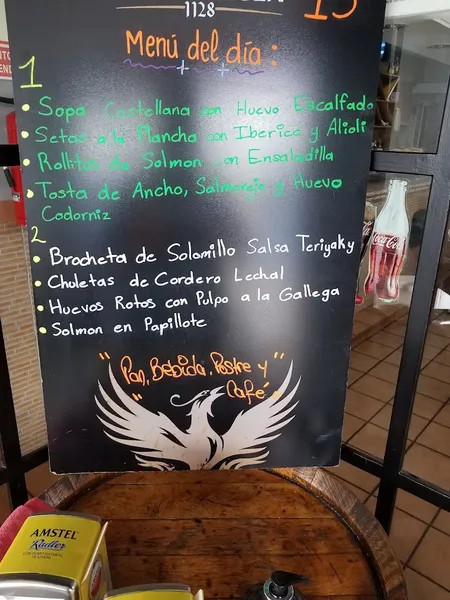 1128
15
Menú del día :
1
• Sopa Castellana con Huevo Escalfado
• Setas a la Plancha con Iberico y Alioli
• Rollitos de Salmon con Ensaladilla
• Tosta de Ancho, Salmorejo y Huevo
Codorniz
2
• Brocheta de Solomillo Salsa Teriyaky
• Chuletas de Cordero Lechal
• Huevos Rotos con Pulpo a la Gallega
• Salmon en Papillote
"Pan, Bebida, Postre y "
" Café"
Coca-Cola
AMSTEL
Radler